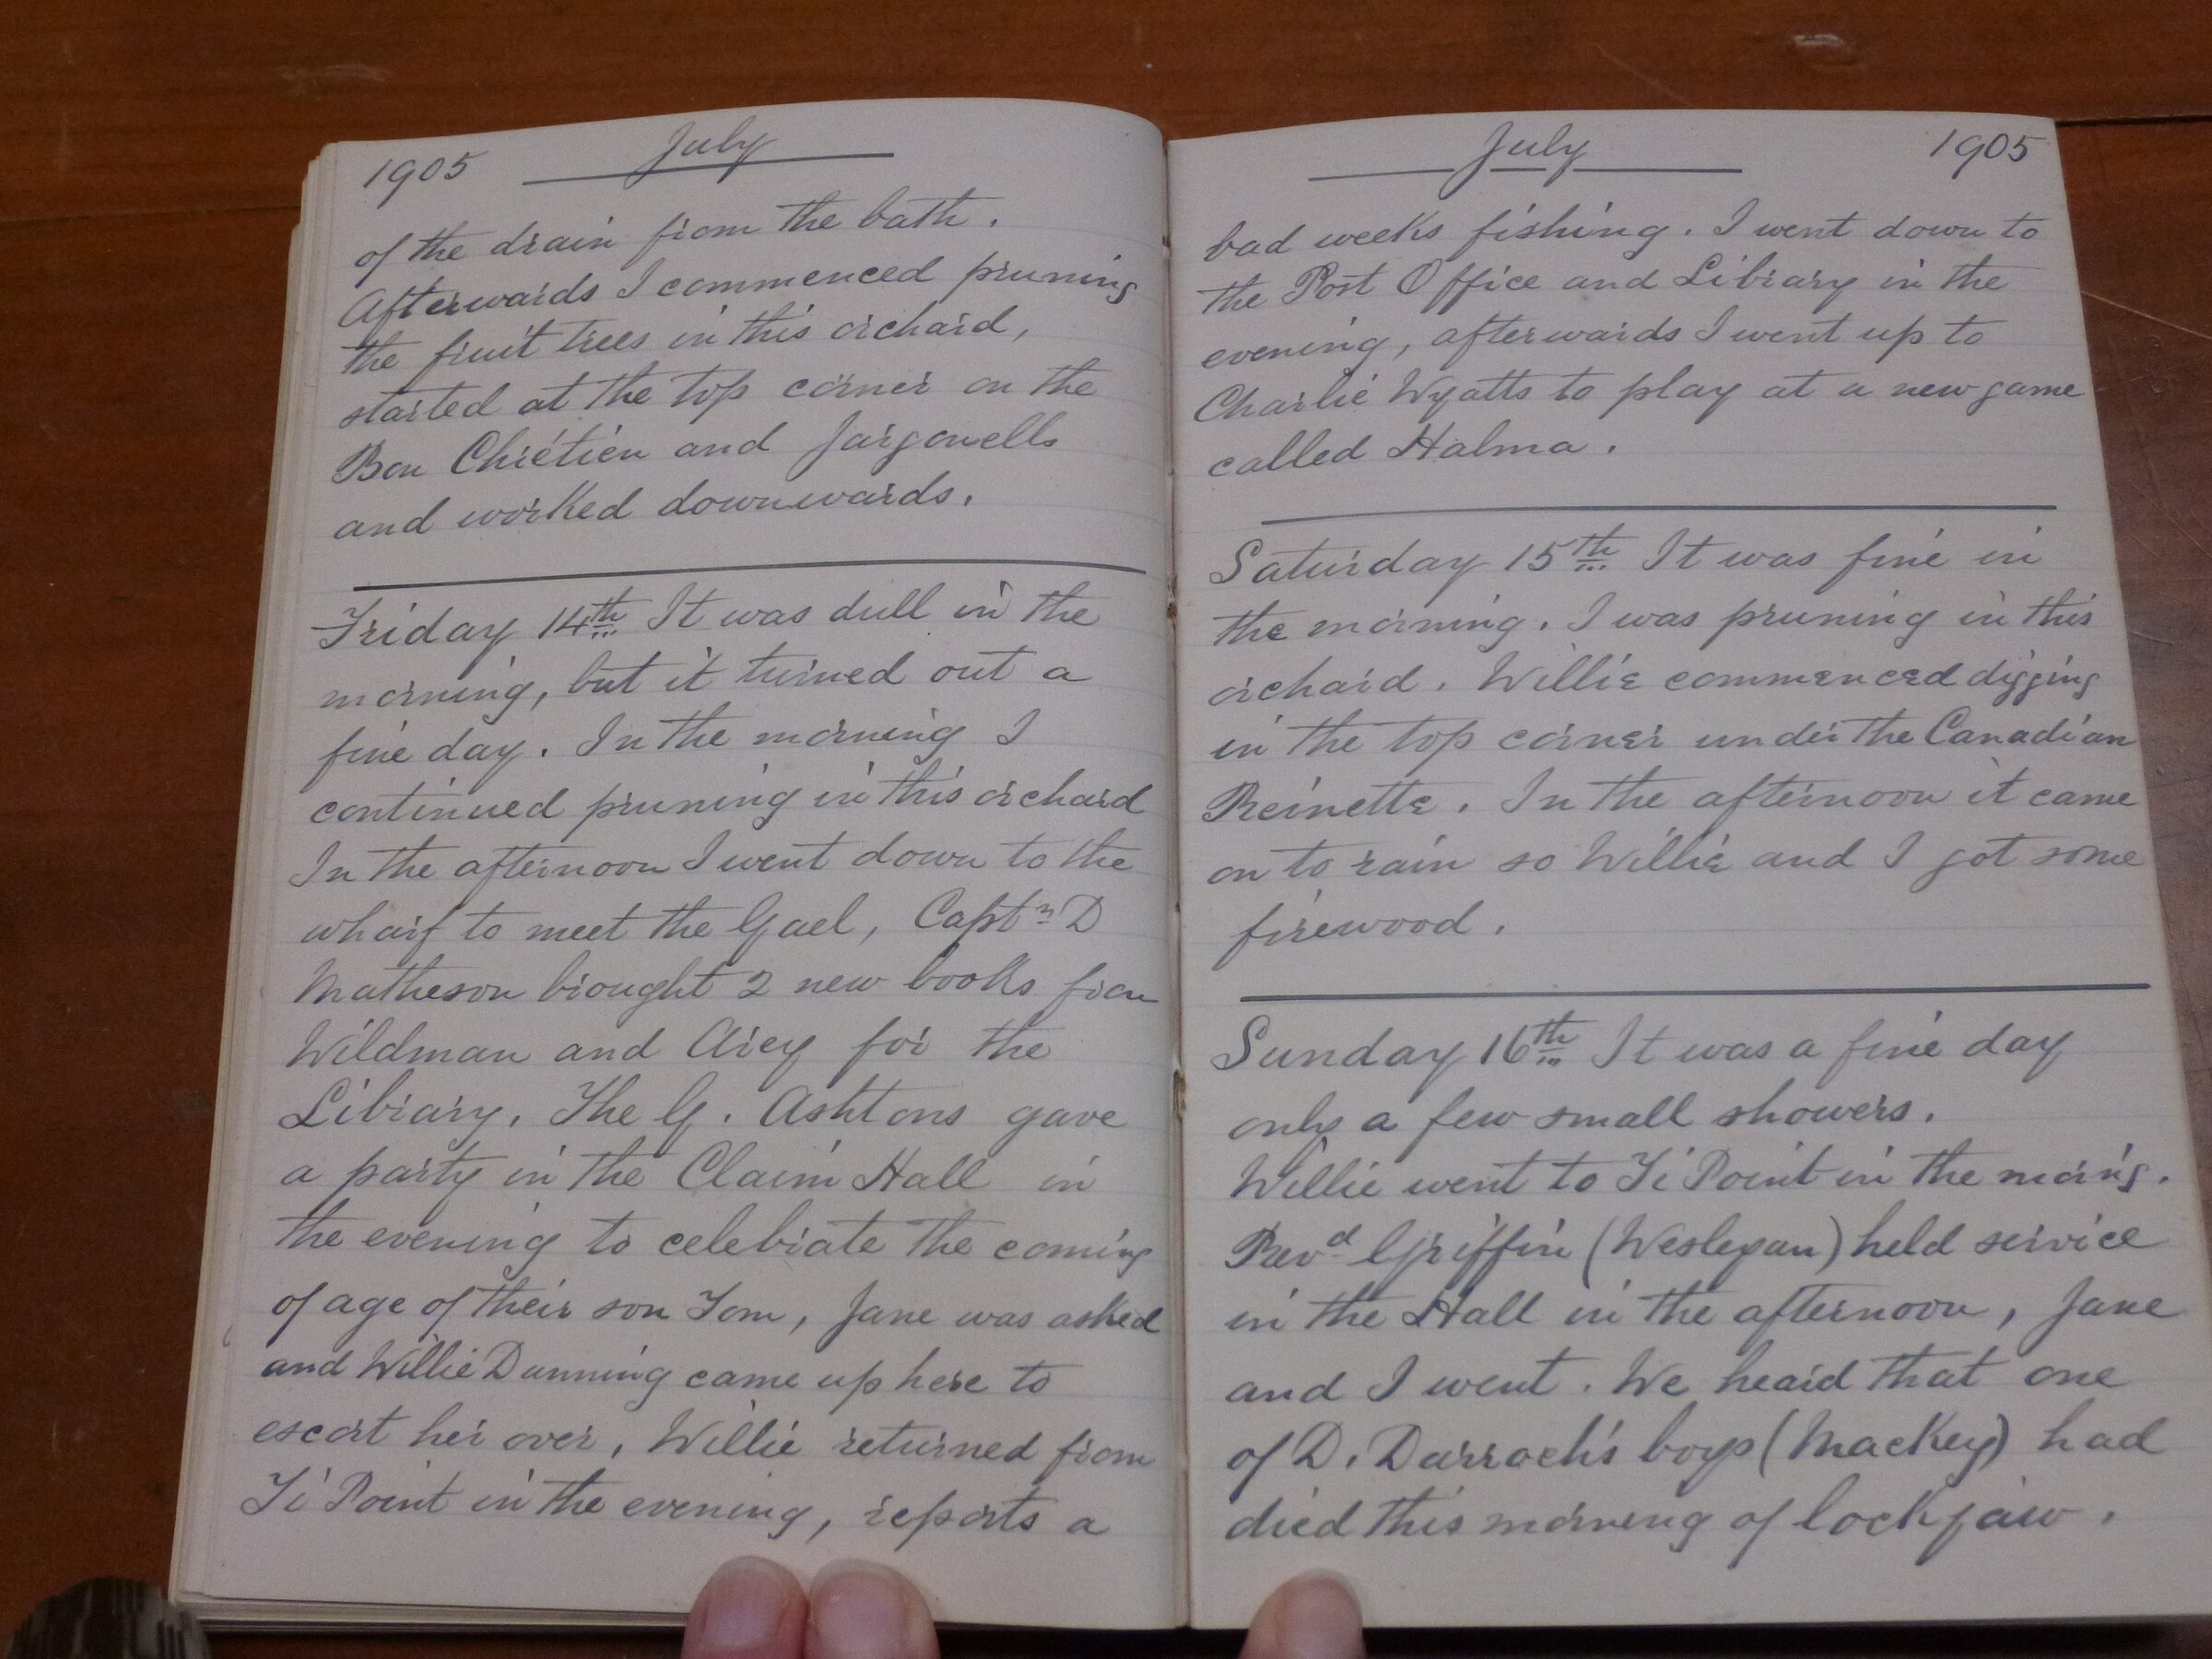 1905 July
of the drain from the bath.
Afterwards I commenced pruning
the fruit trees in this orchard,
started at the top corner on the
Bon Chrétien and Jargonells
and worked downwards.
Friday 14th It was dull in the
morning, but it turned out a
fine day. In the morning I
continued pruning in this orchard
In the afternoon I went down to the
wharf to meet the Gael, Captn D
Matheson brought 2 new books from
Wildman and Arey for the
Library. The G. Ashtons gave
a party in the Claim Hall in
the evening to celebrate the coming
of age of their son Tom, Jane was asked
and Willie Dunning came up here to
escort her over, Willie returned from
Ti Point in the evening, reports a
July 1905
bad weeks fishing. I went down to
the Post Office and Library in the
evening, afterwards I went up to
Charlie Wyatts to play at a new game
called Halma.
Saturday 15th It was fine in
the morning. I was pruning in this
orchard. Willie commenced digging
in the top corner under the Canadian
Reinette. In the afternoon it came
on to rain so Willie and I got some
firewood.
Sunday 16th It was a fine day
only a few small showers.
Willie went to Ti Point in the morng.
Revd Griffin (Wesleyan) held service
in the Hall in the afternoon, Jane
and I went. We heard that one
of D. Darroch's boys (Mackey) had
died this morning of lockjaw.